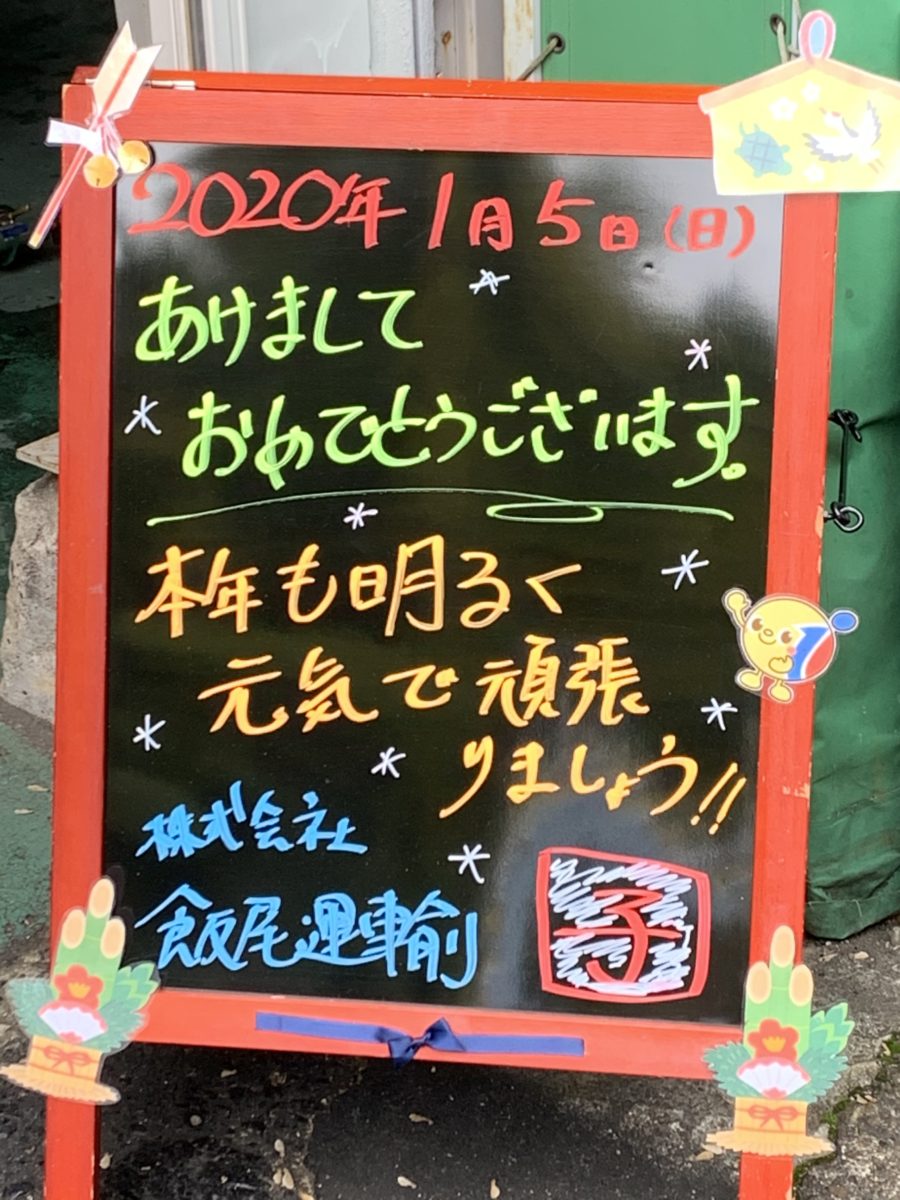 2020年1月5日(日)
あけまして
おめでとうございます。
本年も明るく
元気で頑張
りましょう!!
株式会社
飯尾運輸
子